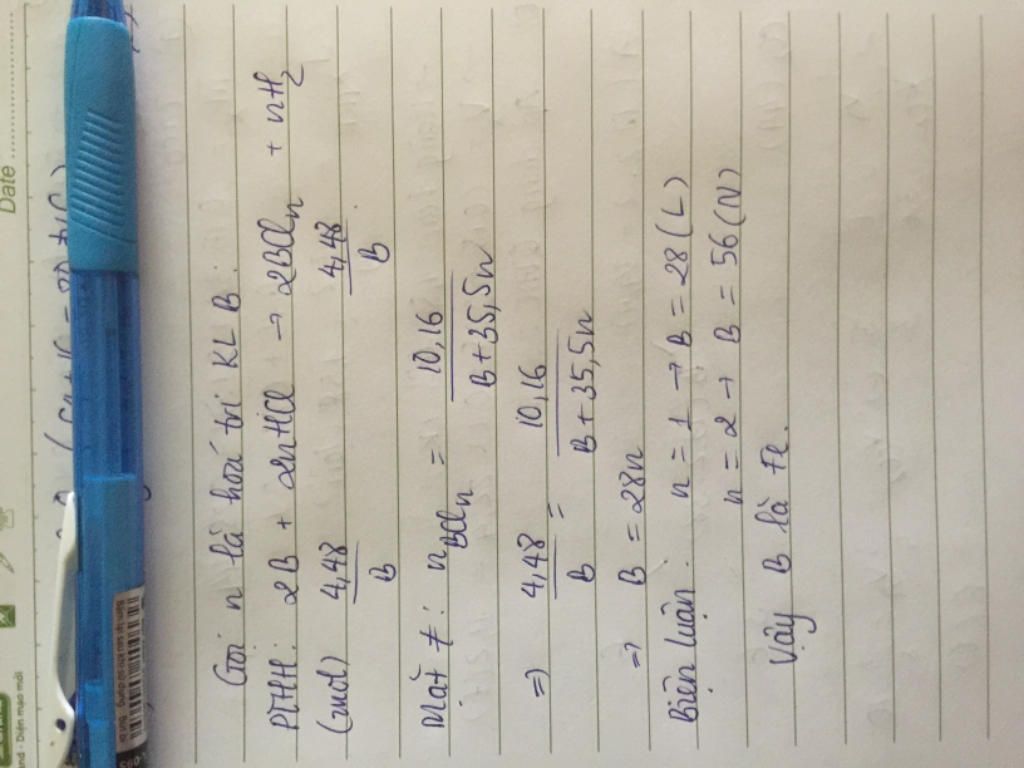 Date
Gọi n là hoá trị KL B.
PTHH: 2B + 2nHCl → 2BCln + nH2
(mol) 4,48/B 4,48/B
Mặt ≠: nBCln = 10,16/(B+35,5n)
=) 4,48/B = 10,16/(B+35,5n)
=) B = 28n
Biện luận. n = 1 → B = 28 (L)
n = 2 → B = 56 (N)
Vậy B là Fe.
Diện mạo mới